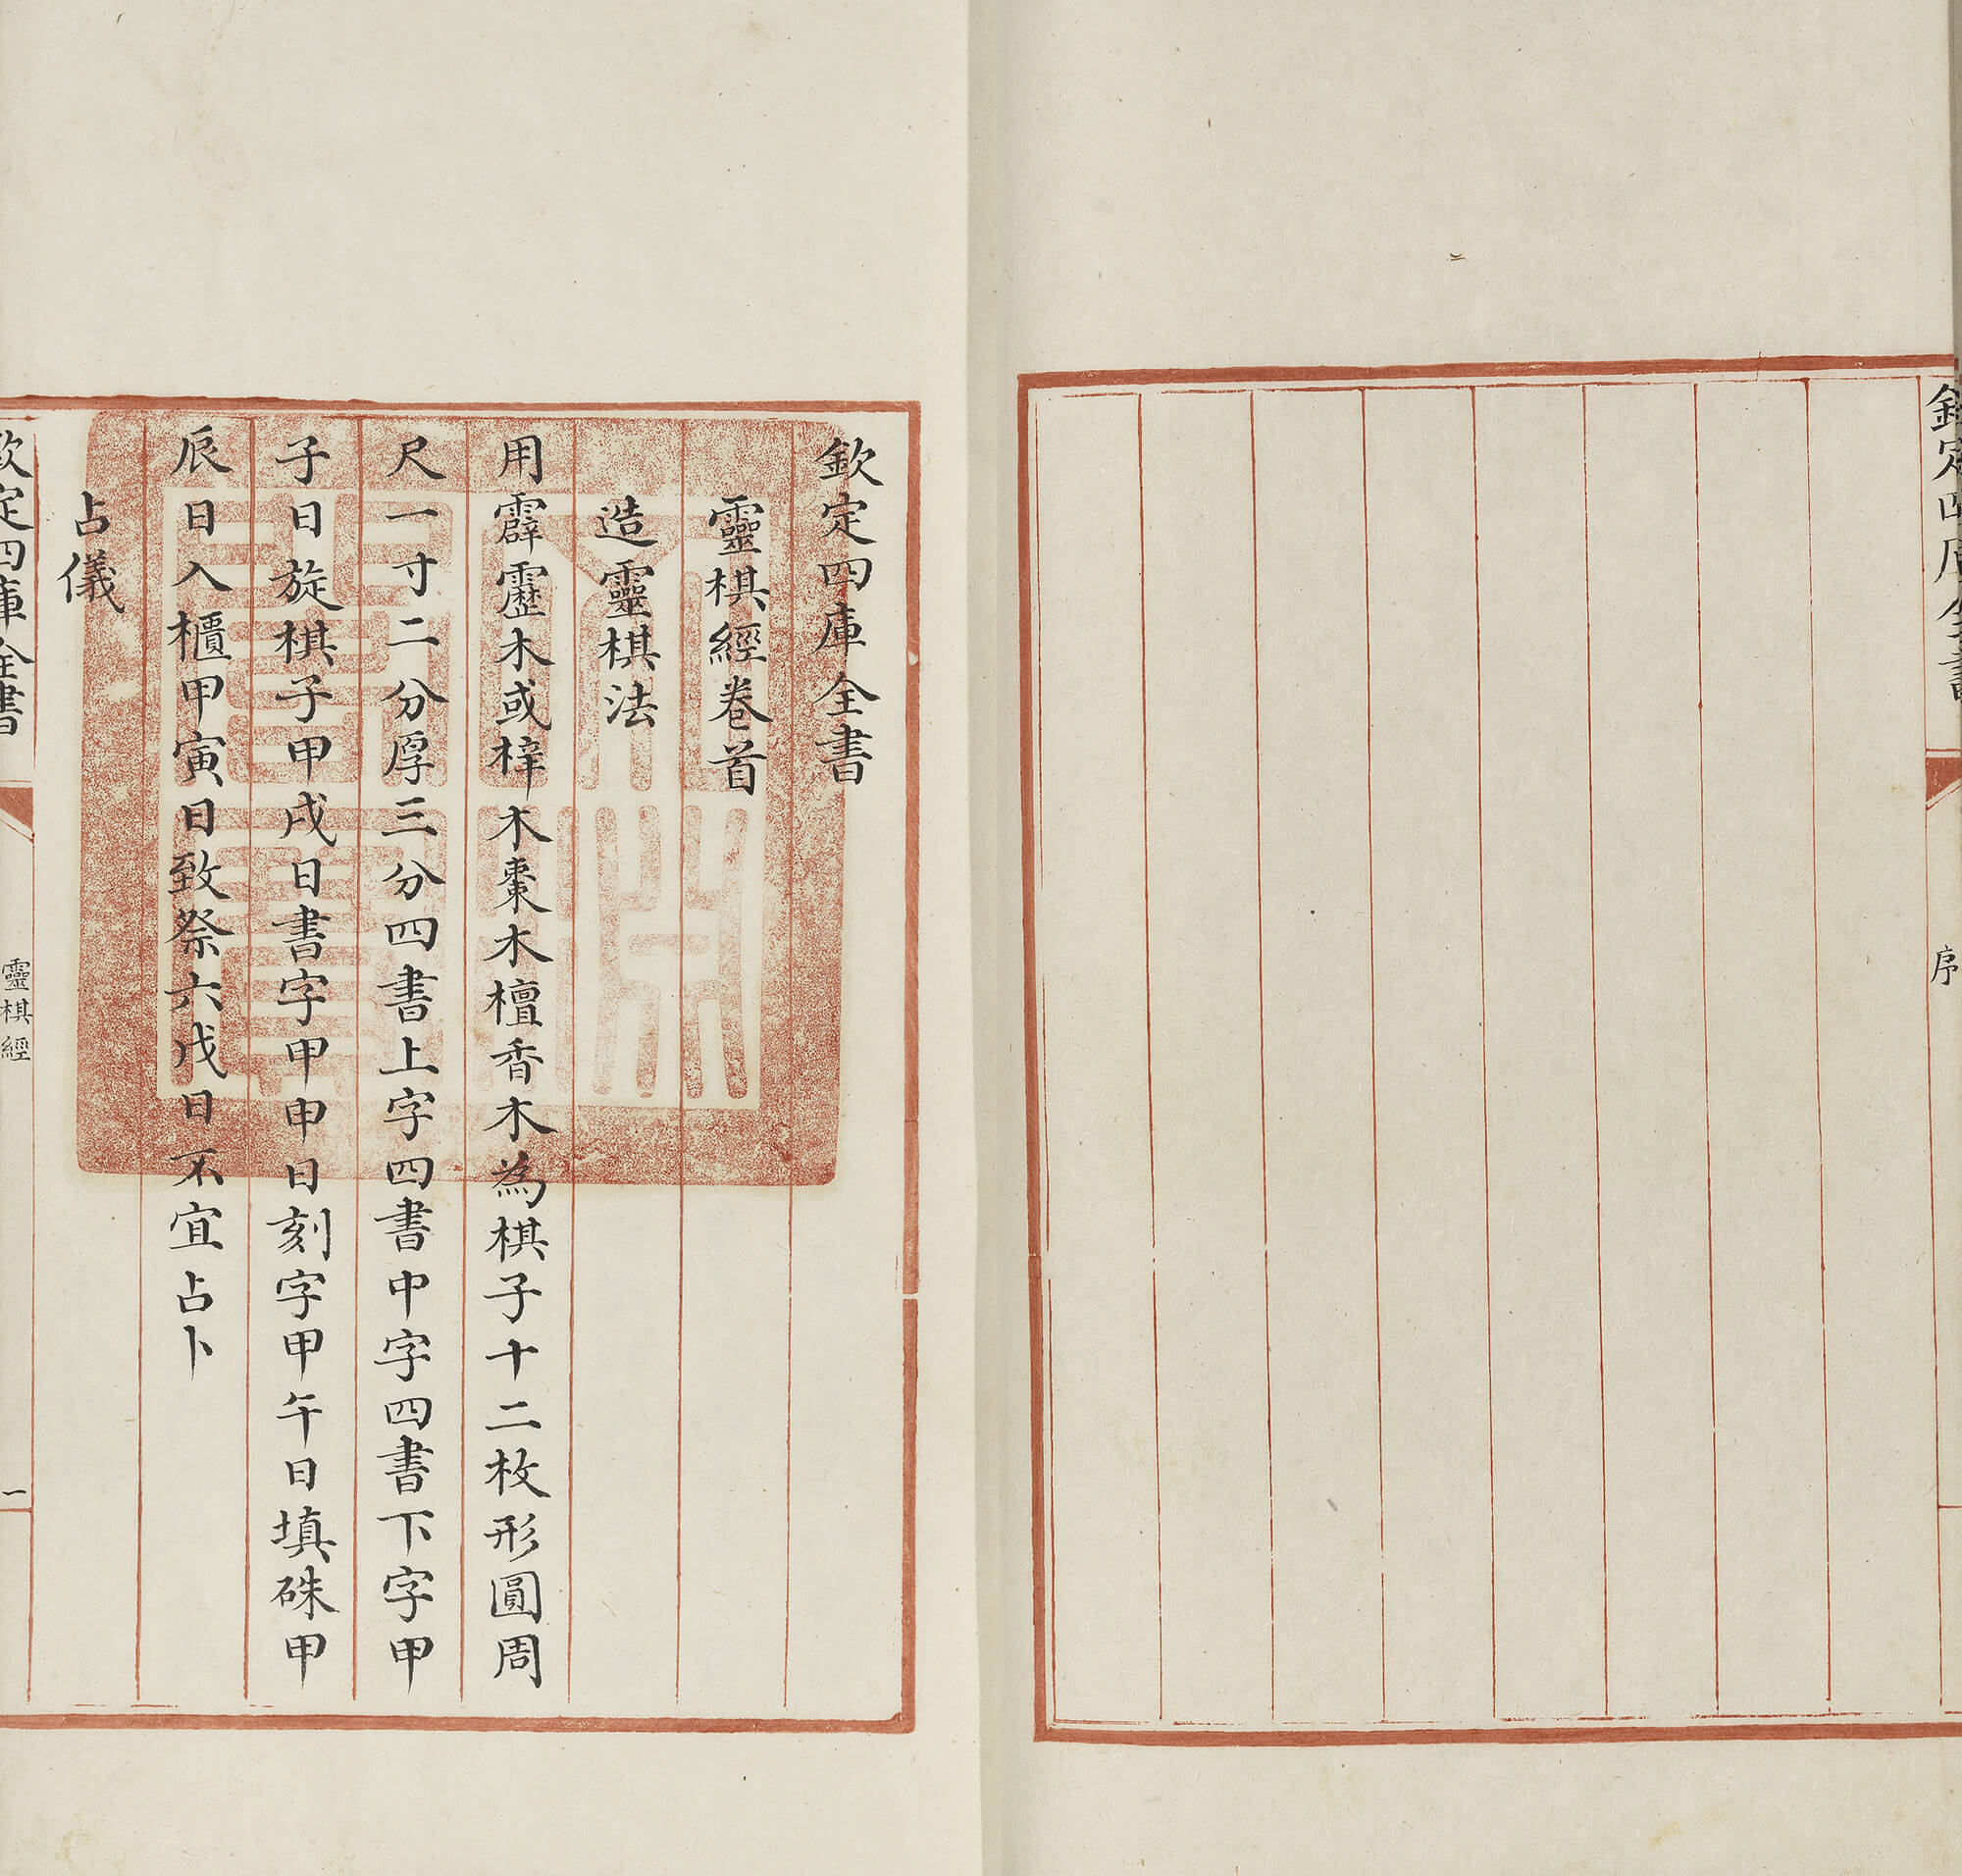 欽定四庫全書
序
欽定四庫全書
靈棋經卷首
造靈棋法
用霹靂木或梓木棗木檀香木為棋子十二枚形圓周
尺一寸二分厚三分四書上字四書中字四書下字甲
子日旋棋子甲戌日書字甲申日刻字甲午日填硃甲
辰日入櫃甲寅日致祭六戊日不宜占卜
占儀
欽定四庫全書
靈棋經
一